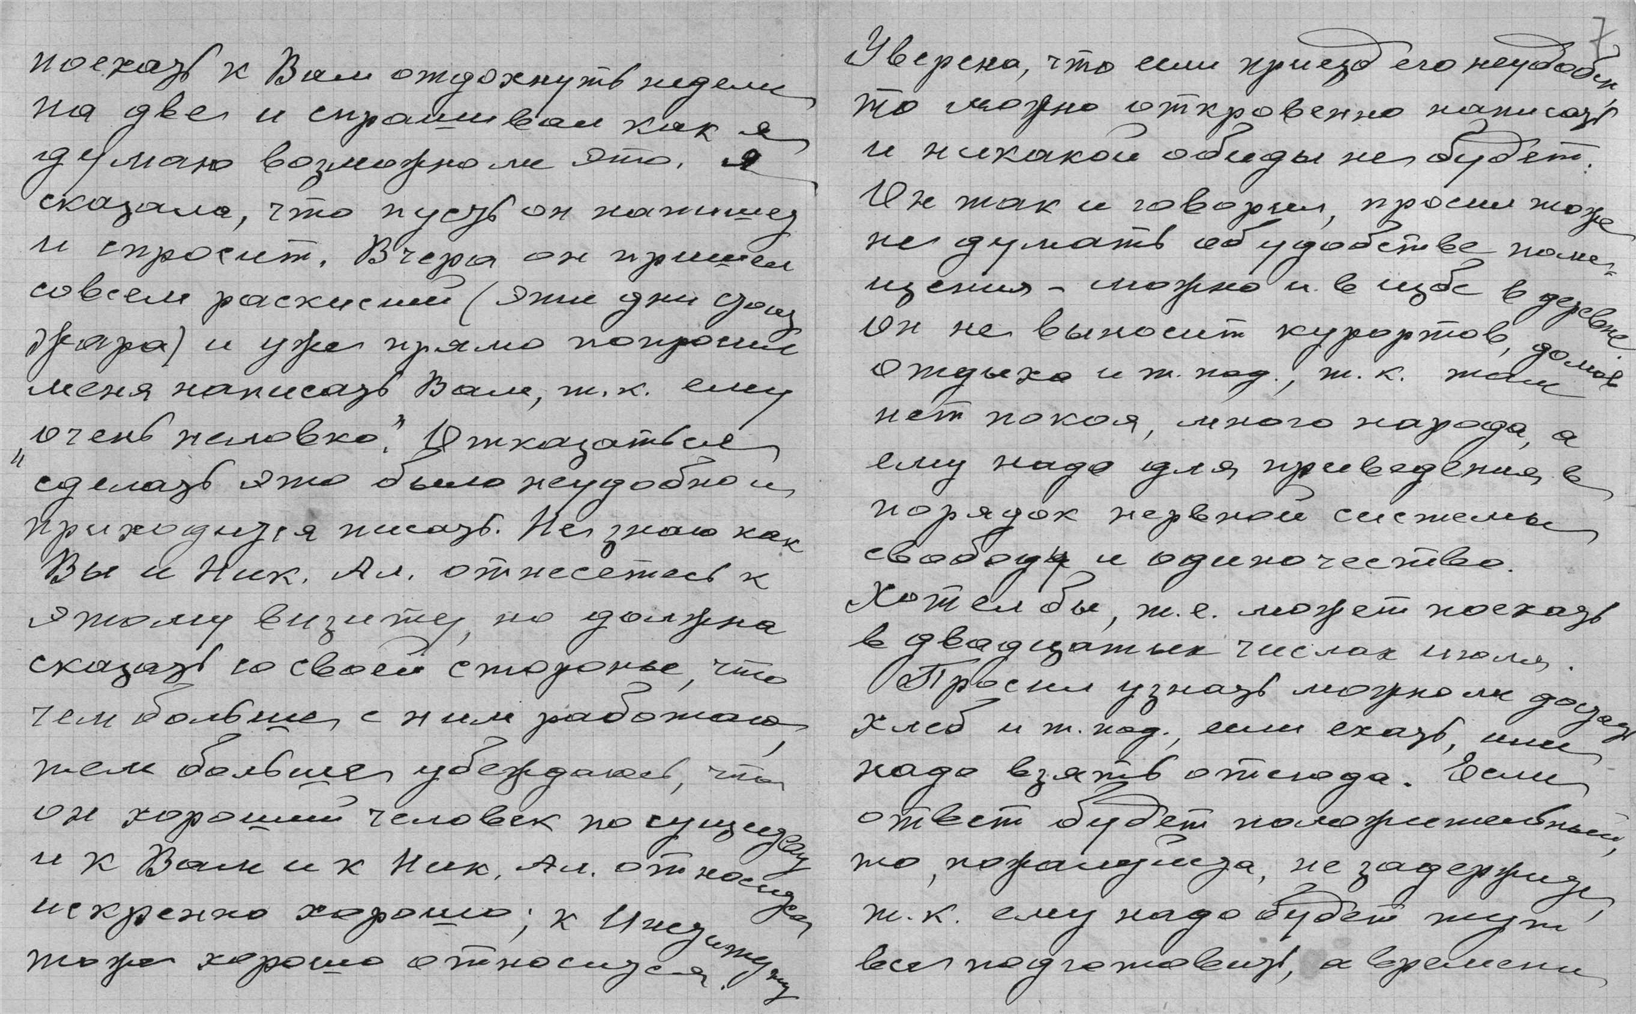 поехать к Вам отдохнуть недели
на две и спрашивал как я
думаю возможно ли это. Я
сказала, что пусть он напишет
и спросит. Вчера он пришел
совсем раскисший (эти дни стоит
жара) и уже прямо попросил
меня написать Вам, т.к. ему
"очень неловко". Отказаться
сделать это было неудобно и
приходится писать. Не знаю как
Вы и Ник. Ал. отнесетесь к
этому визиту, но должна
сказать со своей стороны, что
чем больше с ним работаю,
тем больше убеждаюсь, что
он хороший человек по существу
и к Вам и к Ник. Ал. относится
искренно хорошо; к Институту
тоже хорошо относится.
7
Уверена, что если приезд его неудобен,
то можно откровенно написать
и никакой обиды не будет.
Он так и говорил, просил тоже
не думать об удобстве поме-
щения - можно и в избе в деревне
Он не выносит курортов, домов
отдыха и т. под., т.к. там
нет покоя, много народа, а
ему надо для приведения в
порядок нервной системы
свободу и одиночество.
Хотел бы, т.е. может поехать
в двадцатых числах июля.
Просил узнать можно ли достать
хлеб и т. под., если ехать, или
надо взять отсюда. Если
ответ будет положительный,
то, пожалуйста, не задержите,
т.к. ему надо будет тут
все подготовить, а времени